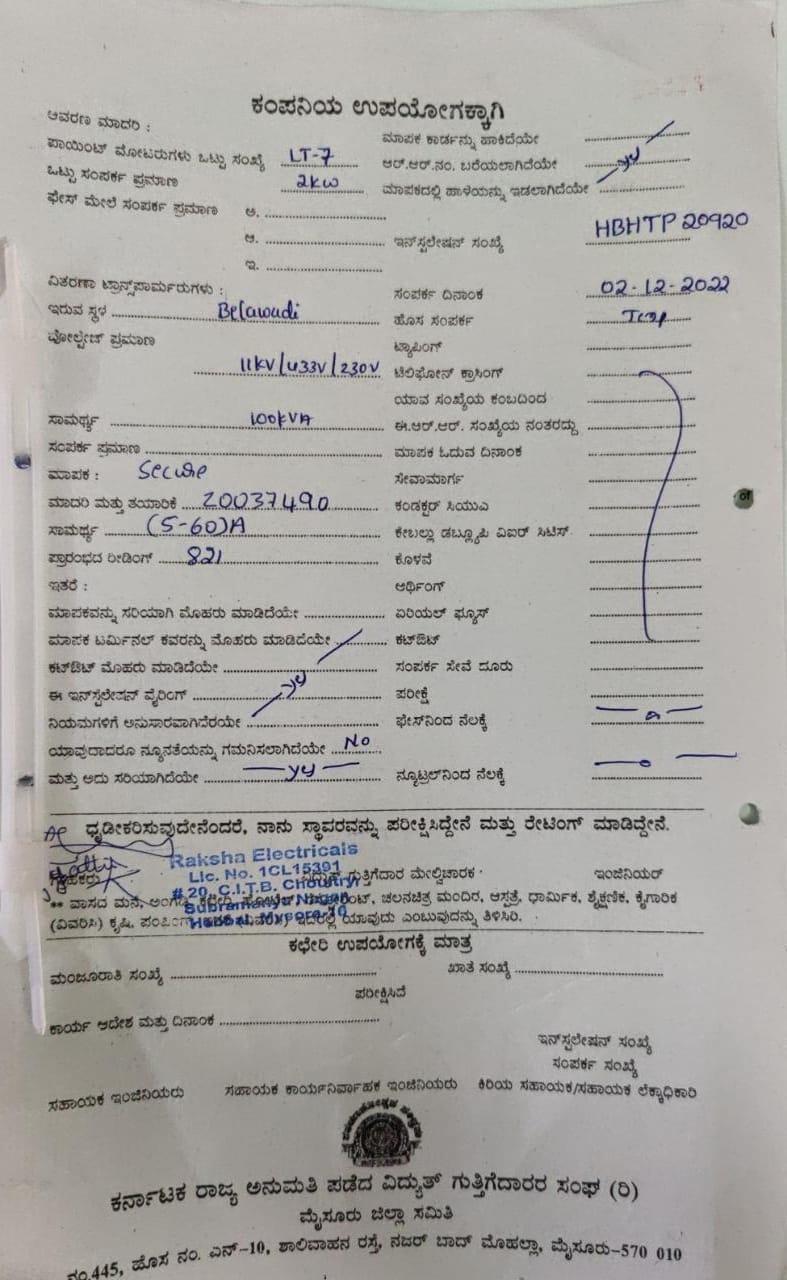 ಕಂಪನಿಯ ಉಪಯೋಗಕ್ಕಾಗಿ
ಆವರಣ ಮಾದರಿ :
ಮಾಪಕ ಕಾರ್ಡನ್ನು ಹಾಕಿದೆಯೇ
ಪಾಯಿಂಟ್ ಮೋಟರುಗಳು ಒಟ್ಟು ಸಂಖ್ಯೆ LT-7 ಆರ್.ಆರ್.ನಂ. ಬರೆಯಲಾಗಿದೆಯೇ
ಒಟ್ಟು ಸಂಪರ್ಕ ಪ್ರಮಾಣ 2kw ಮಾಪಕದಲ್ಲಿ ಹಾಳೆಯನ್ನು ಇಡಲಾಗಿದೆಯೇ
ಫೇಸ್ ಮೇಲೆ ಸಂಪರ್ಕ ಪ್ರಮಾಣ ಅ.
ಆ. ಇನ್‌ಸ್ಟಲೇಷನ್ ಸಂಖ್ಯೆ HBHTP 20920
ಇ.
ವಿತರಣಾ ಟ್ರಾನ್ಸ್‌ಪಾರ್ಮರುಗಳು : ಸಂಪರ್ಕ ದಿನಾಂಕ 02-12-2022
ಇರುವ ಸ್ಥಳ Belawadi ಹೊಸ ಸಂಪರ್ಕ Temp
ವೋಲ್ಟೇಜ್ ಪ್ರಮಾಣ ಟ್ಯಾಪಿಂಗ್
11KV/433V/230V ಟೆಲಿಫೋನ್ ಕ್ರಾಸಿಂಗ್
ಯಾವ ಸಂಖ್ಯೆಯ ಕಂಬದಿಂದ
ಸಾಮರ್ಥ್ಯ 100kVA ಈ.ಆರ್.ಆರ್. ಸಂಖ್ಯೆಯ ನಂತರದ್ದು
ಸಂಪರ್ಕ ಪ್ರಮಾಣ ಮಾಪಕ ಓದುವ ದಿನಾಂಕ
ಮಾಪಕ : Secure ಸೇವಾಮಾರ್ಗ
ಮಾದರಿ ಮತ್ತು ತಯಾರಿಕೆ 20037490 ಕಂಡಕ್ಟರ್ ಸಿಯುಎ
ಸಾಮರ್ಥ್ಯ (5-60)A ಕೇಬಲ್ಲು ಡಬ್ಲ್ಯೂಪಿ ವಿಐರ್ ಸಿಟಿಸ್
ಪ್ರಾರಂಭದ ರೀಡಿಂಗ್ 821 ಕೊಳವೆ
ಇತರೆ : ಆರ್ಥಿಂಗ್
ಮಾಪಕವನ್ನು ಸರಿಯಾಗಿ ಮೊಹರು ಮಾಡಿದೆಯೇ ಏರಿಯಲ್ ಫ್ಯೂಸ್
ಮಾಪಕ ಟರ್ಮಿನಲ್ ಕವರನ್ನು ಮೊಹರು ಮಾಡಿದೆಯೇ ಕಟ್‌ಔಟ್
ಕಟ್‌ಔಟ್ ಮೊಹರು ಮಾಡಿದೆಯೇ ಸಂಪರ್ಕ ಸೇವೆ ದೂರು
ಈ ಇನ್‌ಸ್ಟಲೇಶನ್ ವೈರಿಂಗ್ ಪರೀಕ್ಷೆ
ನಿಯಮಗಳಿಗೆ ಅನುಸಾರವಾಗಿದೆರಯೇ ಫೇಸ್‌ನಿಂದ ನೆಲಕ್ಕೆ
ಯಾವುದಾದರೂ ನ್ಯೂನತೆಯನ್ನು ಗಮನಿಸಲಾಗಿದೆಯೇ No
ಮತ್ತು ಅದು ಸರಿಯಾಗಿದೆಯೇ ನ್ಯೂಟ್ರಲ್‌ನಿಂದ ನೆಲಕ್ಕೆ
ಧೃಡೀಕರಿಸುವುದೇನೆಂದರೆ, ನಾನು ಸ್ಥಾವರವನ್ನು ಪರೀಕ್ಷಿಸಿದ್ದೇನೆ ಮತ್ತು ರೇಟಿಂಗ್ ಮಾಡಿದ್ದೇನೆ.
Raksha Electricals
Lic. No. 1CL15391
ಗುತ್ತಿಗೆದಾರ ಮೇಲ್ವಿಚಾರಕ ಇಂಜಿನಿಯರ್
# 20, C.I.T.B. Choultry
Subramanya Nagar
Hebbal, Mysore-16
** ವಾಸದ ಮನೆ, ಚಲನಚಿತ್ರ ಮಂದಿರ, ಆಸ್ಪತ್ರೆ, ಧಾರ್ಮಿಕ, ಶೈಕ್ಷಣಿಕ, ಕೈಗಾರಿಕ
(ವಿವರಿಸಿ) ಕೃಷಿ, ಇದರಲ್ಲಿ ಯಾವುದು ಎಂಬುವುದನ್ನು ತಿಳಿಸಿರಿ.
ಕಛೇರಿ ಉಪಯೋಗಕ್ಕೆ ಮಾತ್ರ
ಮಂಜೂರಾತಿ ಸಂಖ್ಯೆ ಖಾತೆ ಸಂಖ್ಯೆ
ಪರೀಕ್ಷಿಸಿದೆ
ಕಾರ್ಯ ಆದೇಶ ಮತ್ತು ದಿನಾಂಕ
ಇನ್‌ಸ್ಟಲೇಷನ್ ಸಂಖ್ಯೆ
ಸಂಪರ್ಕ ಸಂಖ್ಯೆ
ಸಹಾಯಕ ಇಂಜಿನಿಯರು ಸಹಾಯಕ ಕಾರ್ಯನಿರ್ವಾಹಕ ಇಂಜಿನಿಯರು ಕಿರಿಯ ಸಹಾಯಕ/ಸಹಾಯಕ ಲೆಕ್ಕಾಧಿಕಾರಿ
ಕರ್ನಾಟಕ ರಾಜ್ಯ ಅನುಮತಿ ಪಡೆದ ವಿದ್ಯುತ್ ಗುತ್ತಿಗೆದಾರರ ಸಂಘ (ರಿ)
ಮೈಸೂರು ಜಿಲ್ಲಾ ಸಮಿತಿ
ನಂ.445, ಹೊಸ ನಂ. ಎನ್-10, ಶಾಲಿವಾಹನ ರಸ್ತೆ, ನಜರ್ ಬಾದ್ ಮೊಹಲ್ಲಾ, ಮೈಸೂರು-570 010